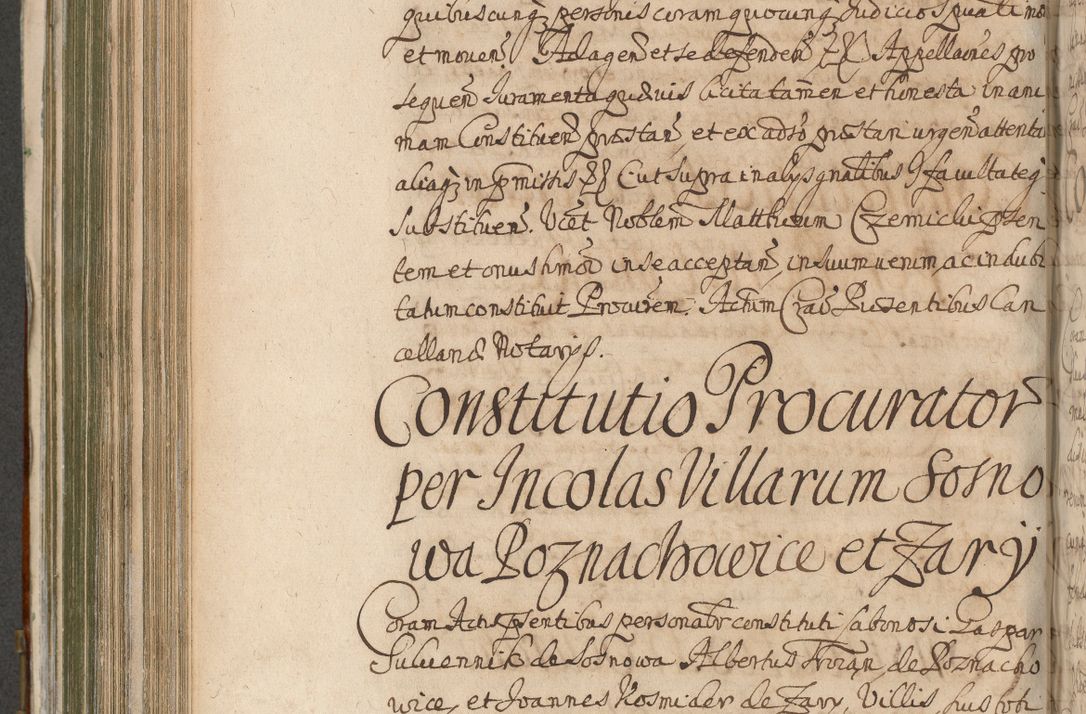 quibuscunq personis coram quocunq Judicio Spuali mo
et mouen. Ad agen et se defenden Appellaones pro
sequen Juramenta quæuis licita tamen et honesta in ani
mam Constituen præstan, et ex adso præstari urgen attenta
aliaq in pmissis Cut supra in alys gnalibus facultateq
substituen. Ucet Noblem Mattheum Czemichi psen
tem et onus hmoi in se acceptan, in suum uerum, ac in dubi
tatum constituit Procurem. Actum Crac Præsentibus Can
cellariæ Notarys.
Constitutio Procurator
per Incolas Villarum Sosno
wa Poznachowice et Zary
Coram Actis psentibus personalr constituti labonosi Gaspar
Suluennik de Sosnowa Albertus Trozan de Poznacho
wice, et Joannes Kosmider de Zary, Villis, suis